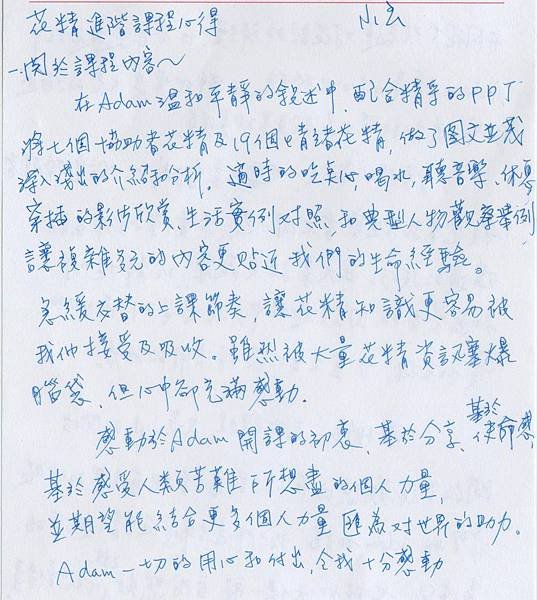 花精進階課程心得
一.關於課程內容～
在Adam溫和平靜的敘述中,配合精彩的PPT
將七個協助者花精及19個情緒花精,做了图文並茂
深入淺出的介紹和分析。適時的吃點心,喝水,聽音樂、休憩
穿插的影片欣赏、生活實例对照,和典型人物觀察舉例
讓複雜多元的內容更貼近我們的生命經驗。
急緩交替的上課節奏,讓花精知識更容易被
我們接受及吸收。雖然被大量花精資訊塞爆
腦袋,但心中卻充滿感動.
感動於Adam開課的初衷、基於分享、基於使命感
基於感受人類苦難所想盡的個人力量,
並期望能結合更多個人力量匯為对世界的助力。
Adam一切的用心和付出,令我十分感動